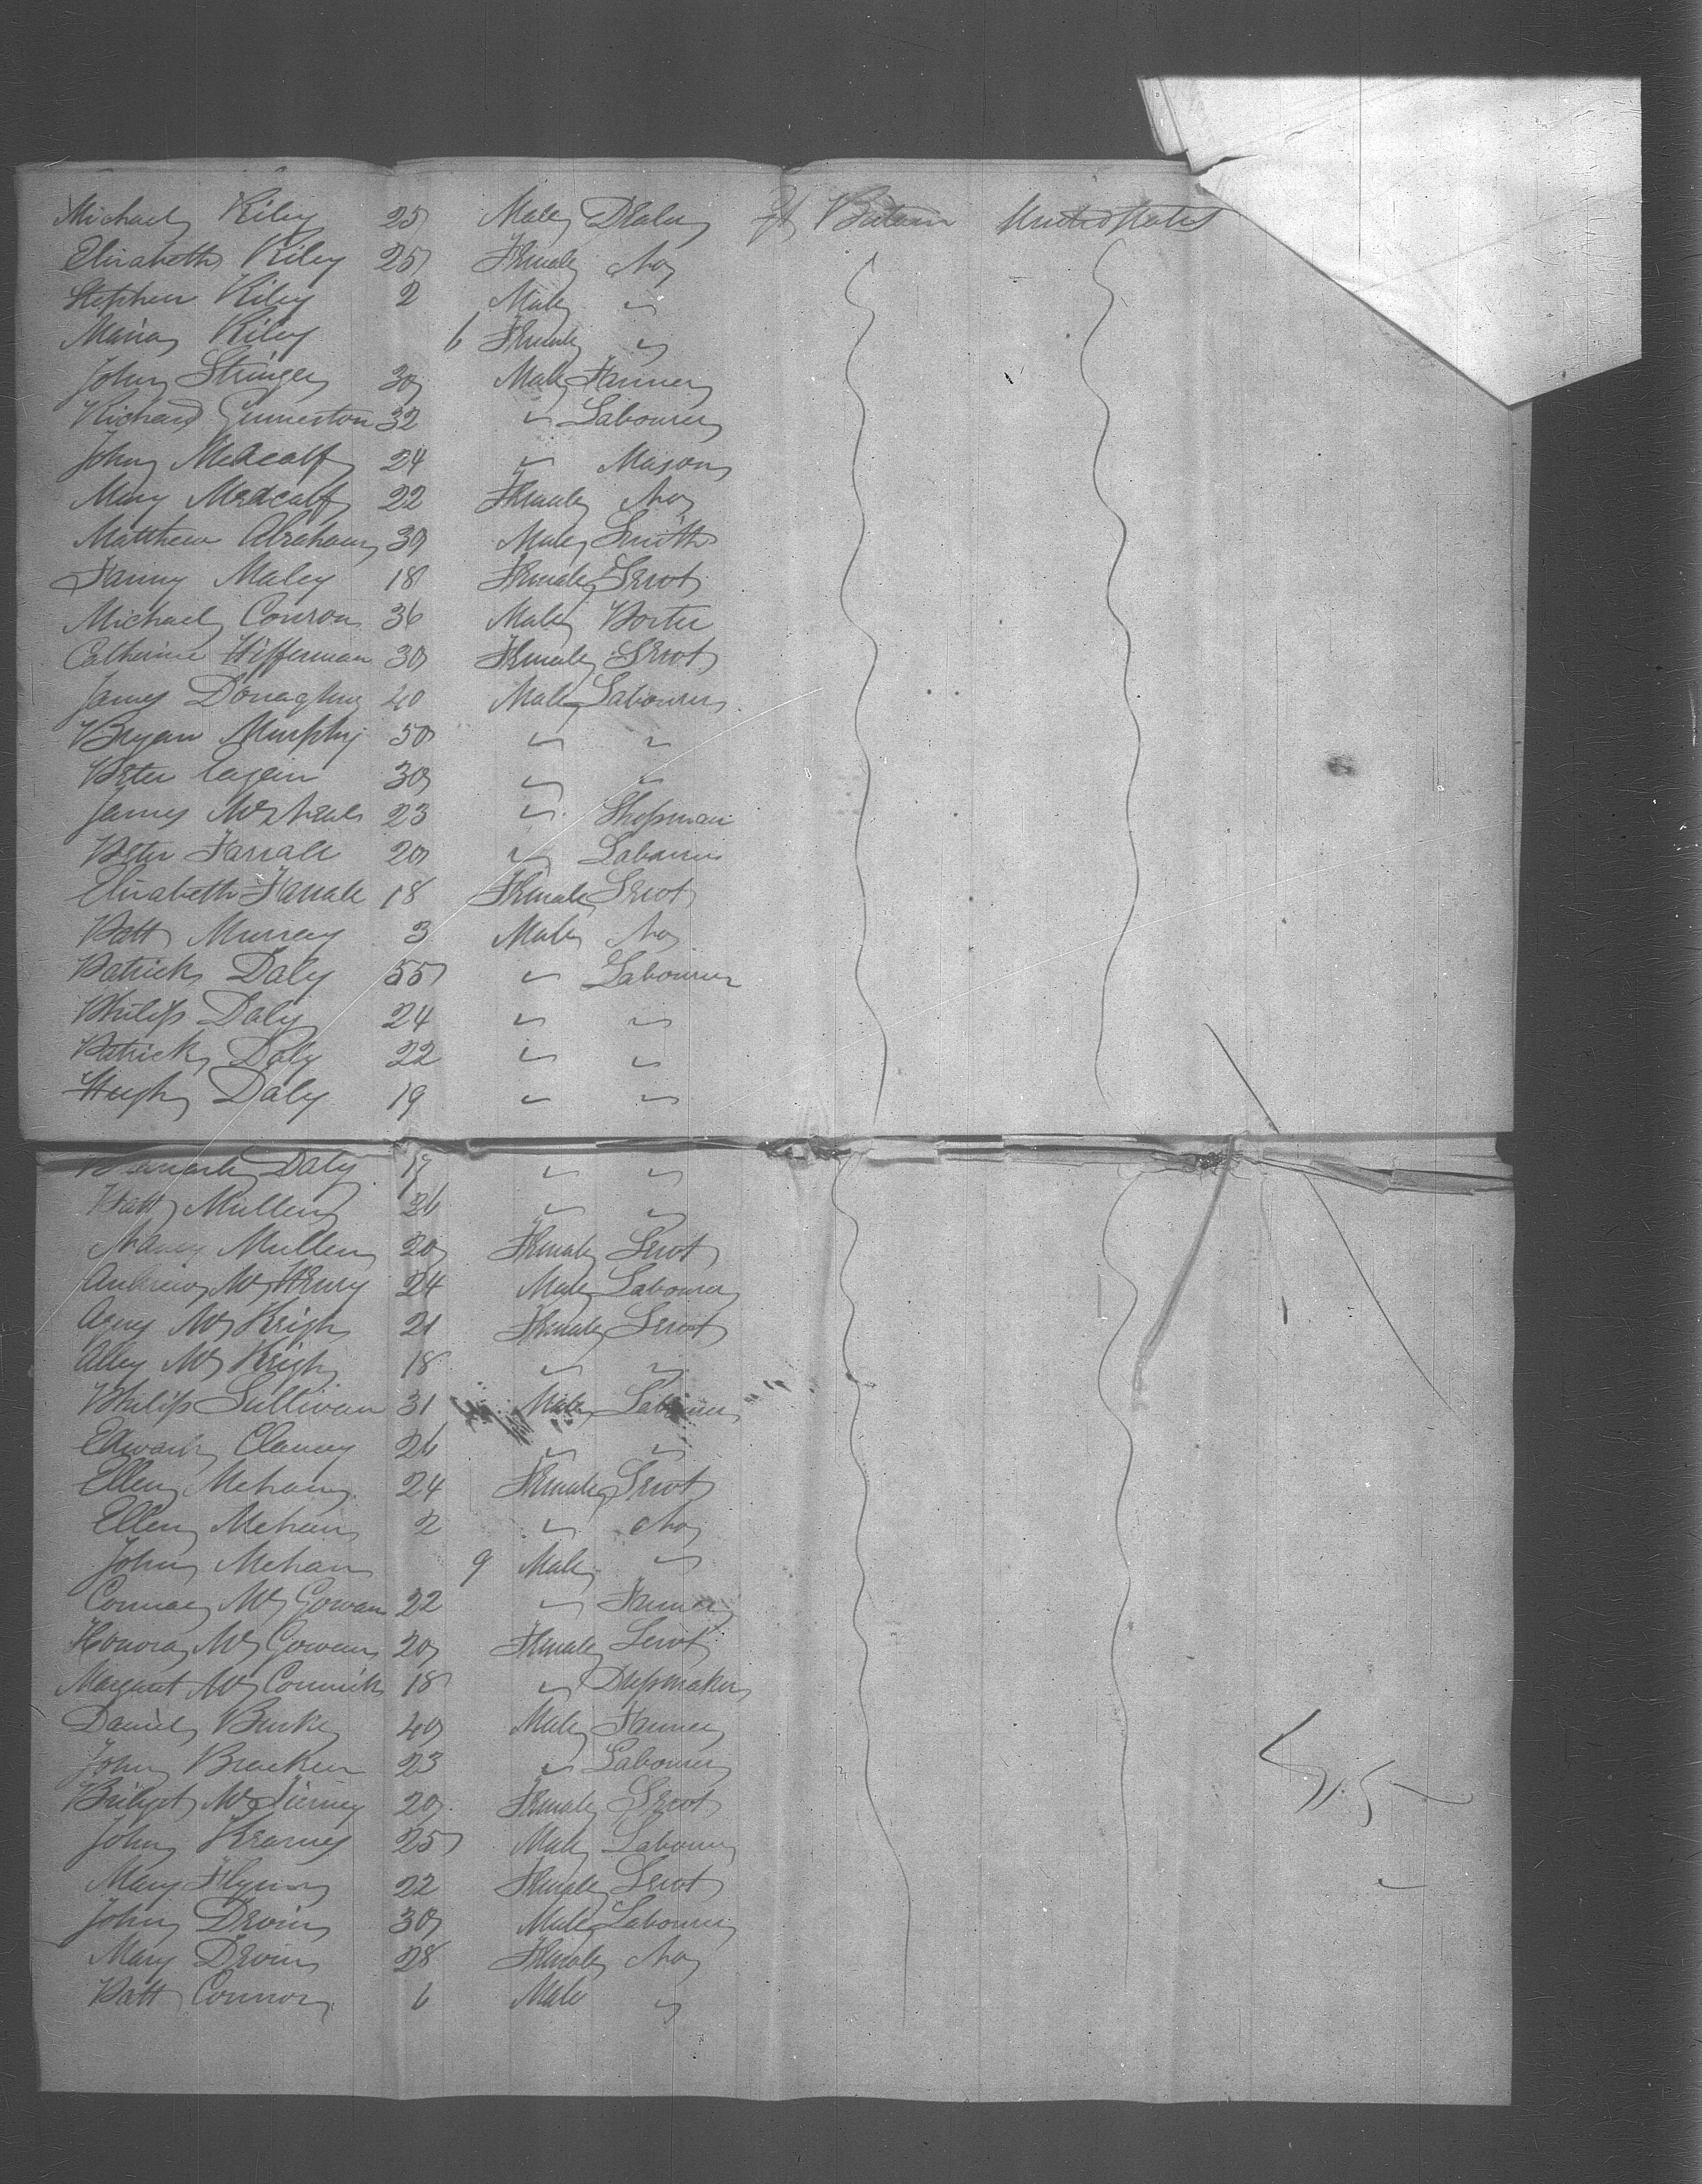 Michael Riley 25 Male Dealer Gt Britain United States
Elizabeth Riley 25 Female No
Stephen Riley 2 Male "
Maria Riley 6 Female "
John Stringer 30 Male Farmer
Richard 32 " Labourer
John Medcalf 24 " Mason
Mary Medcalf 22 Female No
Matthew Abraham 30 Male Smith
Fanny Maley 18 Female Servt
Michael Conron 36 Male Porter
Catherine Hifferman 30 Female Servt
James Donaghue 40 Male Labourer
Bryan Murphy 50 " "
Peter 30 " "
James 23 " Shopman
Peter Farrale 20 " Labourer
Elizabeth Farrale 18 Female Servt
Patt Murray 3 Male No
Patrick Daly 55 " Labourer
Philip Daly 24 " "
Patrick Daly 22 " "
Hugh Daly 19 " "
Daly 17 " "
Patt Mullen 26 " "
Nancy Mullen 20 Female Servt
Andrew McHenry 24 Male Labourer
Agnes McKeigh 21 Female Servt
Alley McKeigh 18 " "
Philip Sullivan 31 Male Labourer
Edward Clancy 26 " "
Ellen Mehan 24 Female Servt
Ellen Mehan 2 " No
John Mehan 9 Male "
McGowan 22 " Farmer
Honora McGowan 20 Female Servt
Margaret McCormick 18 " Dressmaker
Daniel Burke 40 Male Farmer
John Bracken 23 " Labourer
Bridget McTierney 20 Female Servt
John Kearney 25 Male Labourer
Mary Flynn 22 Female Servt
John Devin 30 Male Labourer
Mary Devin 28 Female No
Patt Connor 6 Male "